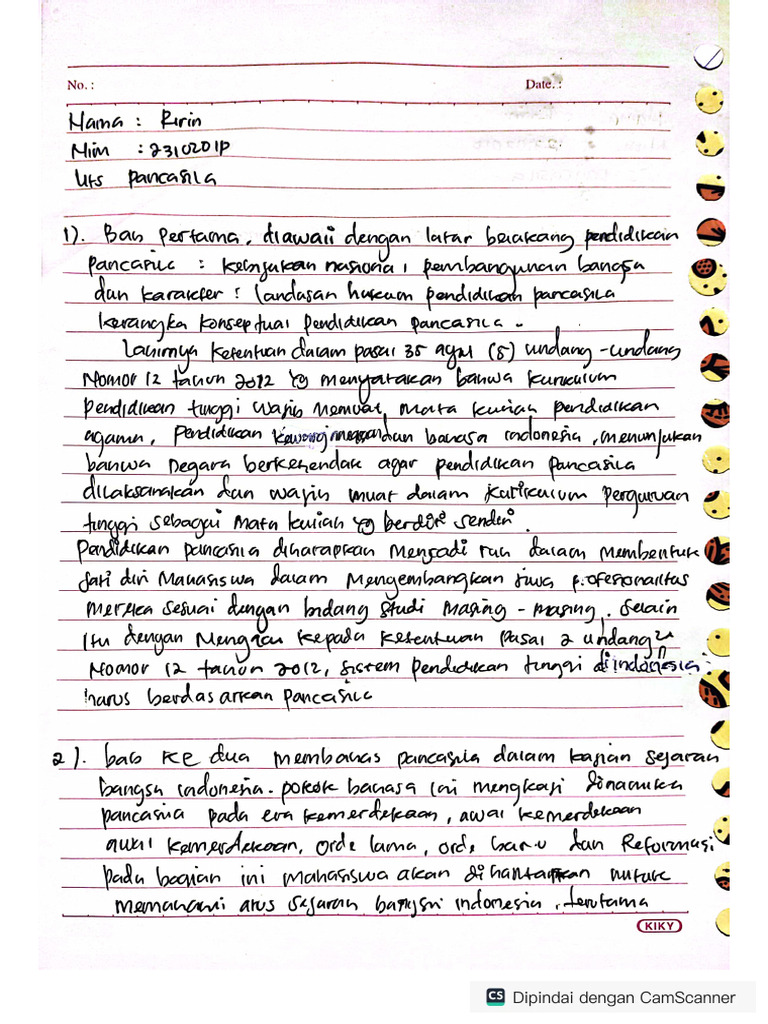 No. :
Date. :
Nama : Ririn
Nim : 2310201P
Uts pancasila
1). Bab pertama, diawali dengan latar belakang pendidikan
pancasila : kebijakan nasional, pembangunan bangsa
dan karakter : landasan hukum pendidikan pancasila
kerangka konseptual pendidikan pancasila.
Lahirnya ketentuan dalam pasal 35 ayat (5) undang-undang
Nomor 12 tahun 2012 yg menyatakan bahwa kurikulum
pendidikan tinggi wajib memuat mata kuliah pendidikan
agama, pendidikan kewarganegaraan dan bahasa indonesia, menunjukan
bahwa negara berkehendak agar pendidikan pancasila
dilaksanakan dan wajib muat dalam kurikulum perguruan
tinggi sebagai mata kuliah yg berdiri sendiri.
Pendidikan pancasila diharapkan menjadi ruh dalam membentuk
jati diri mahasiswa dalam mengembangkan jiwa profesionalitas
mereka sesuai dengan bidang studi masing-masing. Selain
itu dengan mengacu kepada ketentuan pasal 2 undang²
Nomor 12 tahun 2012, sistem pendidikan tinggi di indonesia
harus berdasarkan pancasila
2). bab ke dua membahas pancasila dalam kajian sejarah
bangsa indonesia. pokok bahasa ini mengkaji dinamika
pancasila pada era kemerdekaan, awal kemerdekaan
awal kemerdekaan, orde lama, orde baru dan Reformasi
pada bagian ini mahasiswa akan dihantarkan untuk
memahami arus sejarah bangsa indonesia, terutama
KIKY
CS Dipindai dengan CamScanner